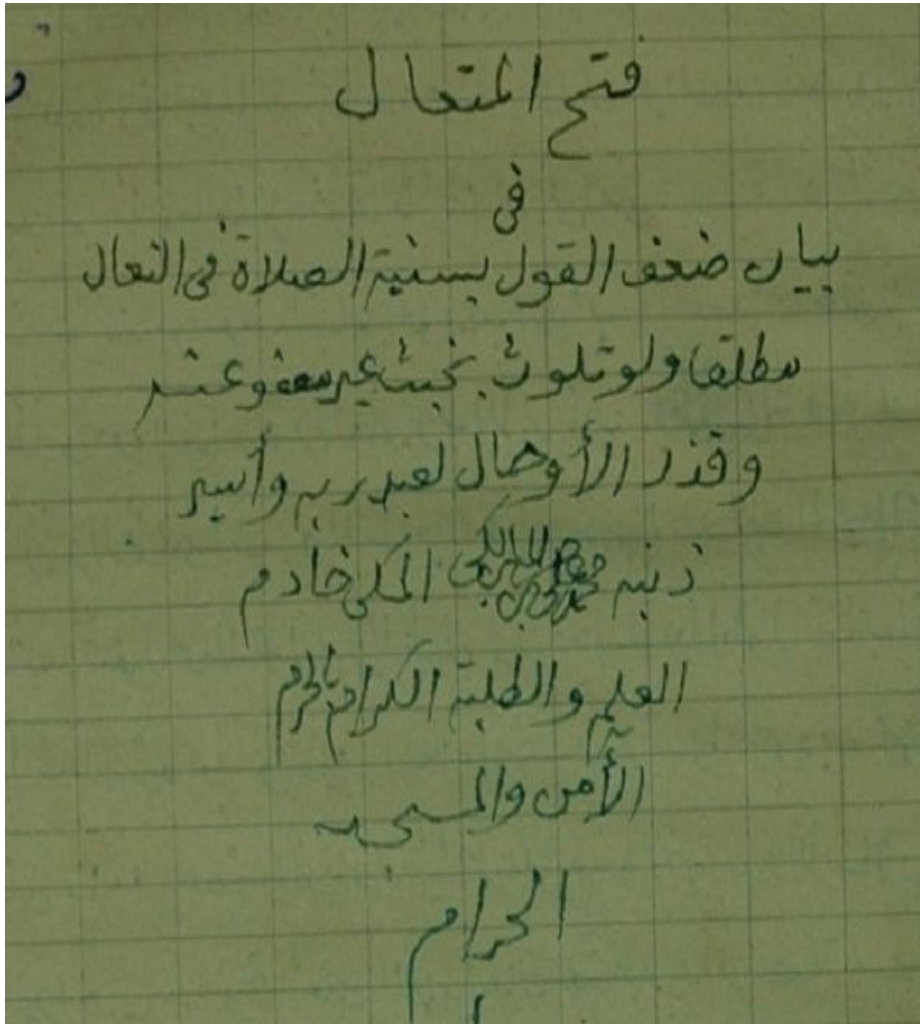 فتح المتعال
في
بيان ضعف القول بسنية الصلاة في النعال
مطلقا ولو تلوث بخبث غير معفو عنه
وقذر الأوحال لعبد ربه وأسير
ذنبه محمد العربي المكى خادم
العلم والطلبة الكرام بالحرم
الآمن والمسجد
الحرام